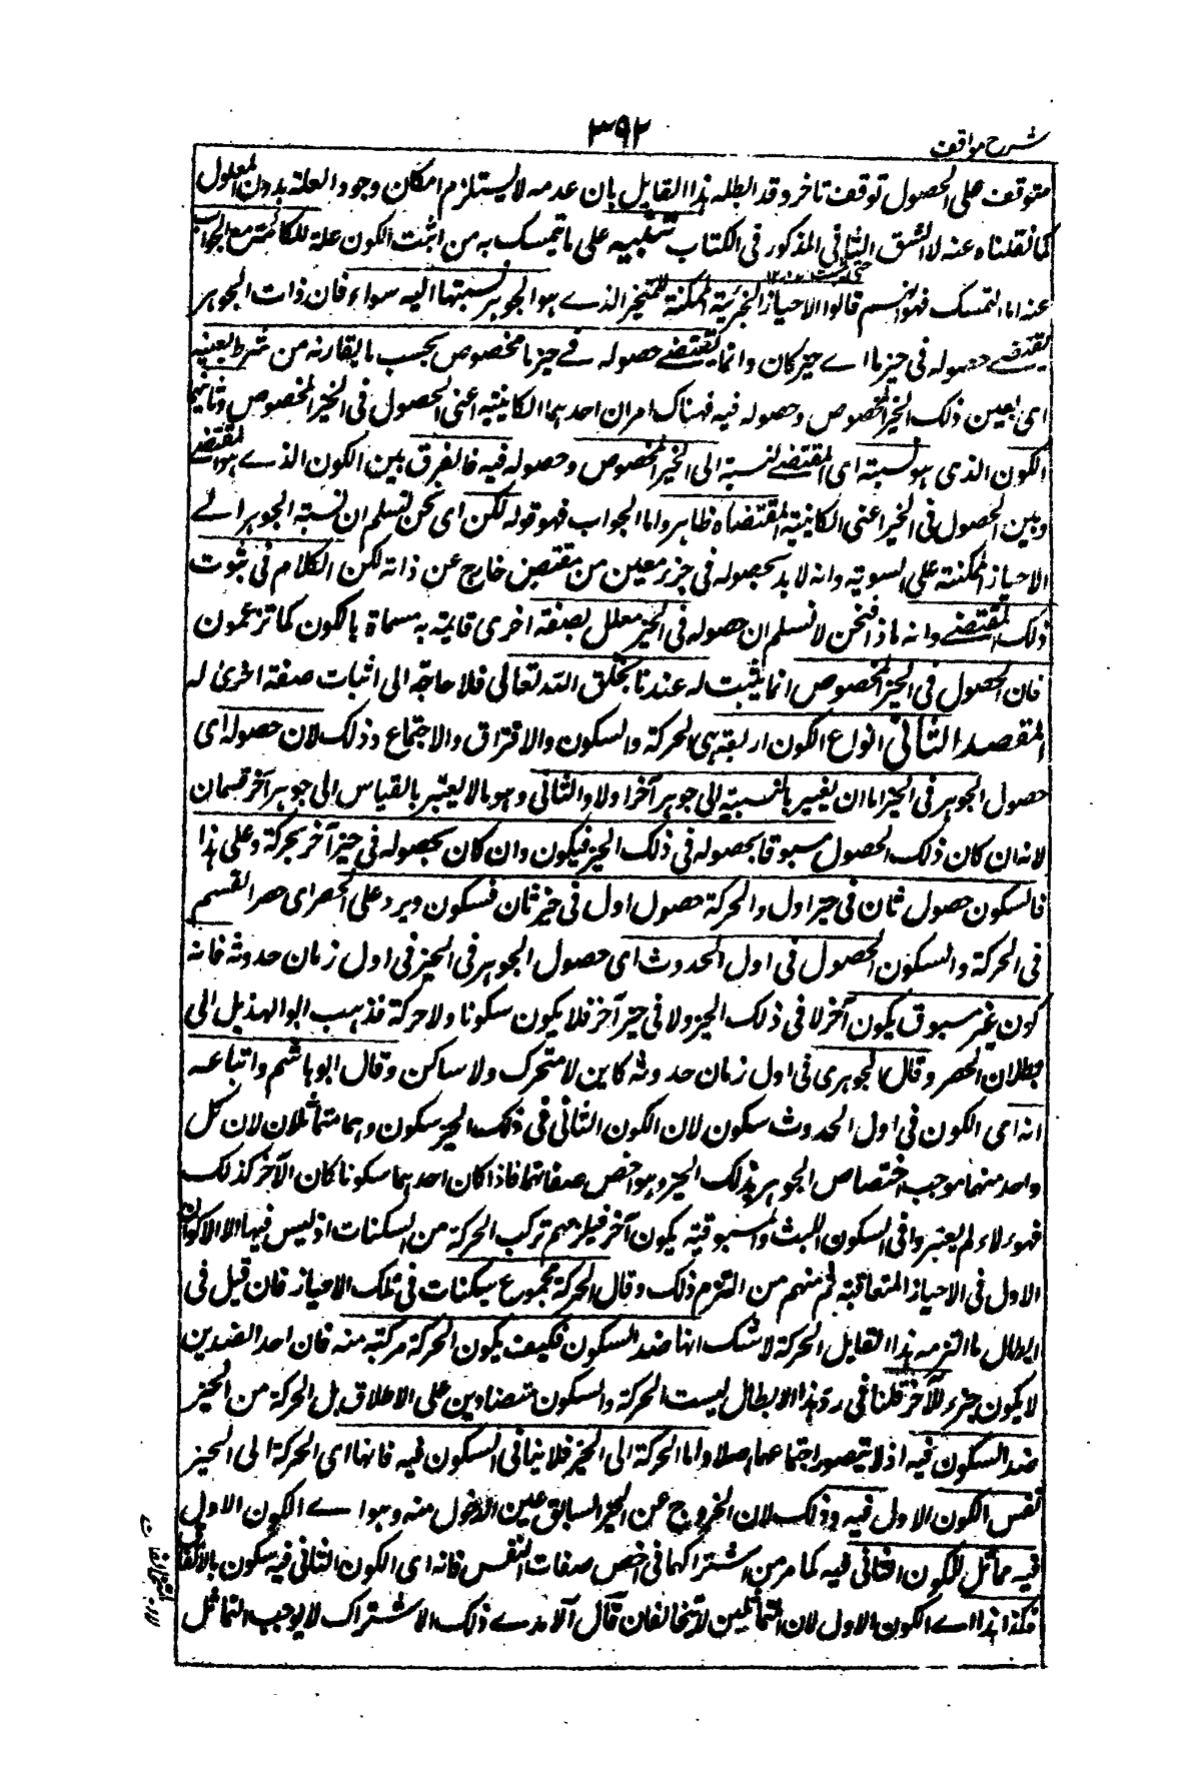 ٣٩٢
شرح مواقف
متوقف على الحصول توقف تاخر وقد ابطله هذا القايل بان عدمه لا يستلزم امكان وجود العلة بدون المعلول
كما نقلناه عنه لا الشق الثانى المذكور فى الكتاب تنبيه على ما تمسك به من اثبت الكون علة للكائنية مع الجواب
عنه اما التمسك فهو انهم قالوا الاحياز الجزئية الممكنة للمتحيز الذے هو الجوهر نسبتها اليه سواء فان ذات الجوهر
يقتضے حصوله فى حيز ما اے حيز كان وانما يقتضے حصوله فے حيز ما مخصوص بحسب ما يقارنه من شرط يعينه
اى يعين ذلك الحيز المخصوص وحصوله فيه فهناك امران احدهما الكاينية اعنى الحصول فى الحيز المخصوص وثانيهما
الكون الذى هو نسبته اى المقتضے لنسبة الى الحيز المخصوص وحصوله فيه فالفرق بين الكون الذے هو المقتضے
وبين الحصول فى الحيز اعنى الكاينية المقتضاة ظاهر واما الجواب فهو قوله لكن اى نحن نسلم ان نسبة الجوهر الے
الاحياز الممكنة على السوية وانه لا بد لحصوله فى حيز معين من مقتض خارج عن ذاته لكن الكلام فى ثبوت
ذلك المقتضے وانه ماذا فنحن لا نسلم ان حصوله فى الحيز معلل بصفة اخرى قايمة به مسماة بالكون كما تزعمون
فان الحصول فى الحيز المخصوص انما يثبت له عندنا بخلق الله تعالى فلا حاجة الى اثبات صفة اخرى له
المقصد الثانى انواع الكون اربعة هى الحركة والسكون والافتراق والاجتماع وذلك لان حصوله اى
حصول الجوهر فى الحيز اما ان يعتبر بالنسبة الى جوهر آخر اولا والثانى وهو ما لا يعتبر بالقياس الى جوهر آخر قسمان
لانه ان كان ذلك الحصول مسبوقا بحصوله فى ذلك الحيز فيكون وان كان بحصوله فى حيز آخر بحركة وعلى هذا
فالسكون حصول ثان فى حيز اول والحركة حصول اول فى حيز ثان فسكون ويرد على الحصر اى حصر القسم
فى الحركة والسكون الحصول فى اول الحدوث اى حصول الجوهر فى الحيز فى اول زمان حدوثه فانه
كون غير مسبوق بكون آخر لا فى ذلك الحيز ولا فى حيز آخر فلا يكون سكونا ولا حركة فذهب ابو الهذيل الى
بطلان الحصر وقال الجوهرى فى اول زمان حدوثه كاين لا متحرك ولا ساكن وقال ابو هاشم واتباعه
انه اى الكون فى اول الحدوث سكون لان الكون الثانى فى ذلك الحيز سكون وهما متماثلان لان كل
واحد منهما موجب اختصاص الجوهر بذلك الحيز وهو اخص صفاتهما فاذا كان احدهما سكونا كان الآخر كذلك
فهؤلاء لم يعتبروا فى السكون اللبث والمسبوقية بكون آخر فيلزمهم تركب الحركة من السكنات اذ ليس فيها الا الاكوان
الاول فى الاحياز المتعاقبة ثم منهم من التزم ذلك وقال الحركة مجموع سكنات فى تلك الاحياز فان قيل فى
ابطال ما التزمه هذا القايل الحركة لا شك انها ضد السكون فكيف يكون الحركة مركبة منه فان احد الضدين
لا يكون جزء للآخر قلنا فى رد هذا الابطال ليست الحركة والسكون متضادين على الاطلاق بل الحركة من الحيز
ضد السكون فيه اذ لا يتصور اجتماعهما اصلا واما الحركة الى الحيز فلا ينافى السكون فيه فانها اى الحركة الى الحيز
نفس الكون الاول فيه وذلك لان الخروج عن الحيز السابق عين الدخول منه وهو اے الكون الاول
فيه مماثل للكون الثانى فيه كما مر من اشتراكهما فى اخص صفات النفس فانه اى الكون الثانى فيه سكون بالاتفاق
فكذا هذا اے الكون الاول لان المتماثلين لا يتخالفان قال الآمدے ذلك الاشتراك لا يوجب التماثل